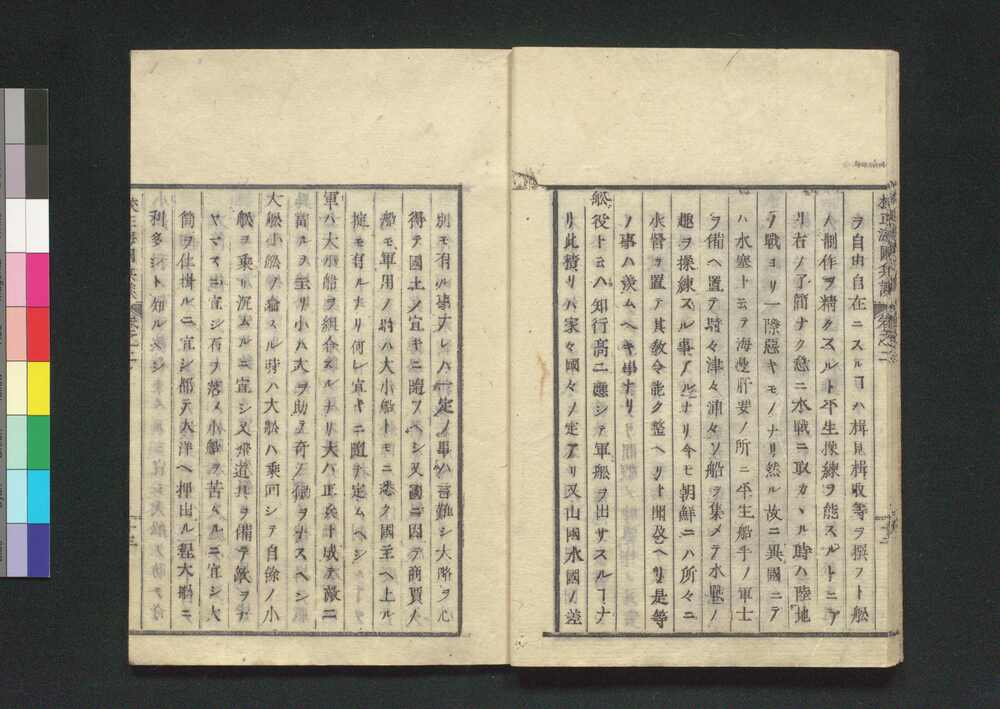 ヲ自由自在ニスルヿハ楫見楫收等ヲ撰フト船
ノ制作ヲ精クスルト平生操練ヲ能スルトニア
リ右ノ了簡ナク怱ニ水戰ニ取カヽル時ハ陸地
ノ戰ヨリ一際惡キモノナリ然ル故ニ異國ニテ
ハ水寨ト云テ海邊肝要ノ所ニ平生船手ノ軍士
ヲ備ヘ置テ時々津々浦々ノ船ヲ集メテ水戰ノ
趣ヲ操練スル事アルナリ今モ朝鮮ニハ所々ニ
水營ヲ置テ其敎令能ク整ヘリト聞及ヘリ是等
ノ事ハ羨ムヘキ事ナリ
舩役ト云ハ知行高ニ應シテ軍船ヲ出サスルヿナ
リ此積リハ家々國々ノ定アリ又山國水國ノ差
別モ有ル事ナレハ一定ノ事ハ言難シ大略ヲ心
得テ國土ノ宜キニ隨フヘシ又國ニ因テ商買ノ
船モ軍用ノ時ハ大小船トモニ悉ク國主ヘ上ル
掟モ有ルナリ何レ宜キニ隨テ定ムヘシ
軍ハ大小船ヲ組合スルナリ大ハ正兵ト成テ敵ニ
當ルヲ主リ小ハ大ヲ助テ奇ノ働ヲナスヘシ
大舩小舩ノ論スル時ハ大舩ハ乘回シテ自餘ノ小
舩ヲ乘リ沉ムルニ宜シ又飛道具ヲ備テ敵ヲナ
ヤマスニ宜シ石ヲ落メ小船ヲ苦ムルニ宜シ大
筒ヲ仕掛ルニ宜シ都テ大洋ヘ押出ル程大振ニ
利多シト知ルヘシ